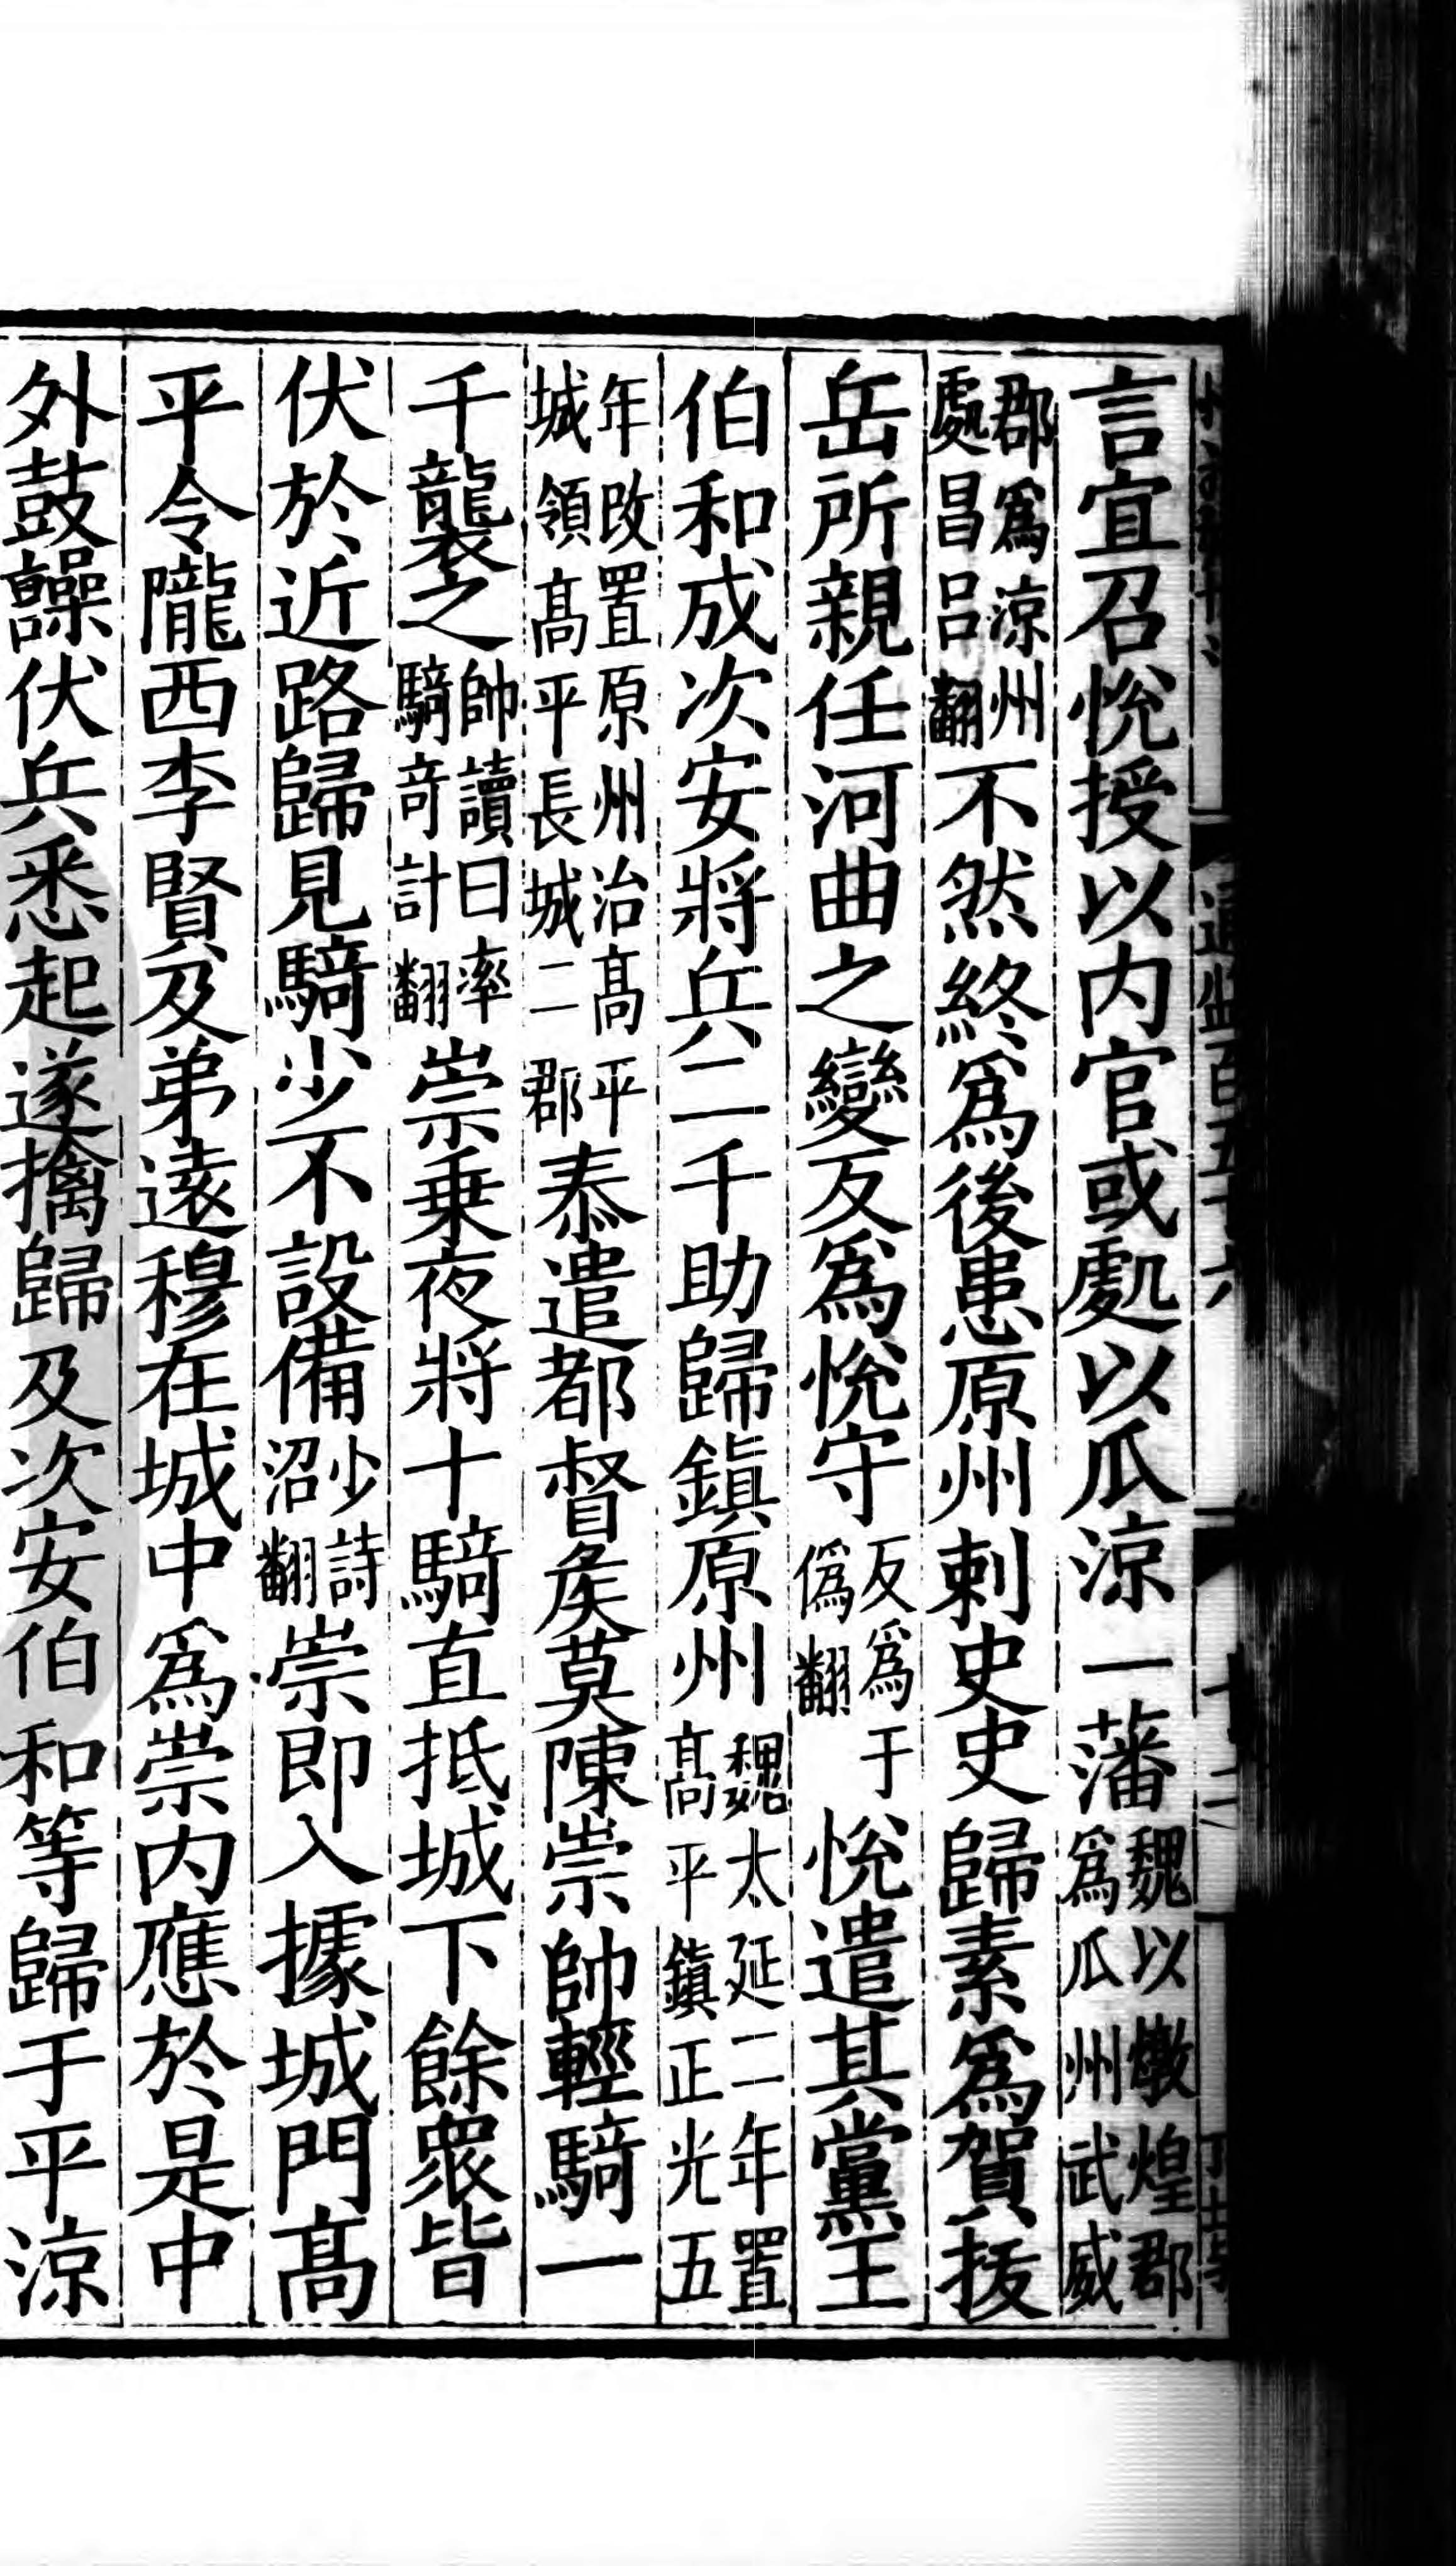 言宜召悅授以内官或處以瓜涼一藩魏以燉煌郡爲瓜州武威
郡爲涼州處昌呂翻不然終爲後患原州刺史史歸素爲賀拔
岳所親任河曲之變反爲悅守反爲于僞翻悅遣其黨王
伯和成次安將兵二千助歸鎭原州魏太延二年置髙平鎭正光五
年改置原州治髙平城領髙平長城二郡泰遣都督矦莫陳崇帥輕騎一
千襲之帥讀曰率騎奇計翻崇乗夜將十騎直抵城下餘衆皆
伏於近路歸見騎少不設備少詩沼翻崇即入據城門髙
平令隴西李賢及弟遠穆在城中爲崇内應於是中
外鼓譟伏兵悉起遂擒歸及次安伯和等歸于平涼
通鑑百五十六